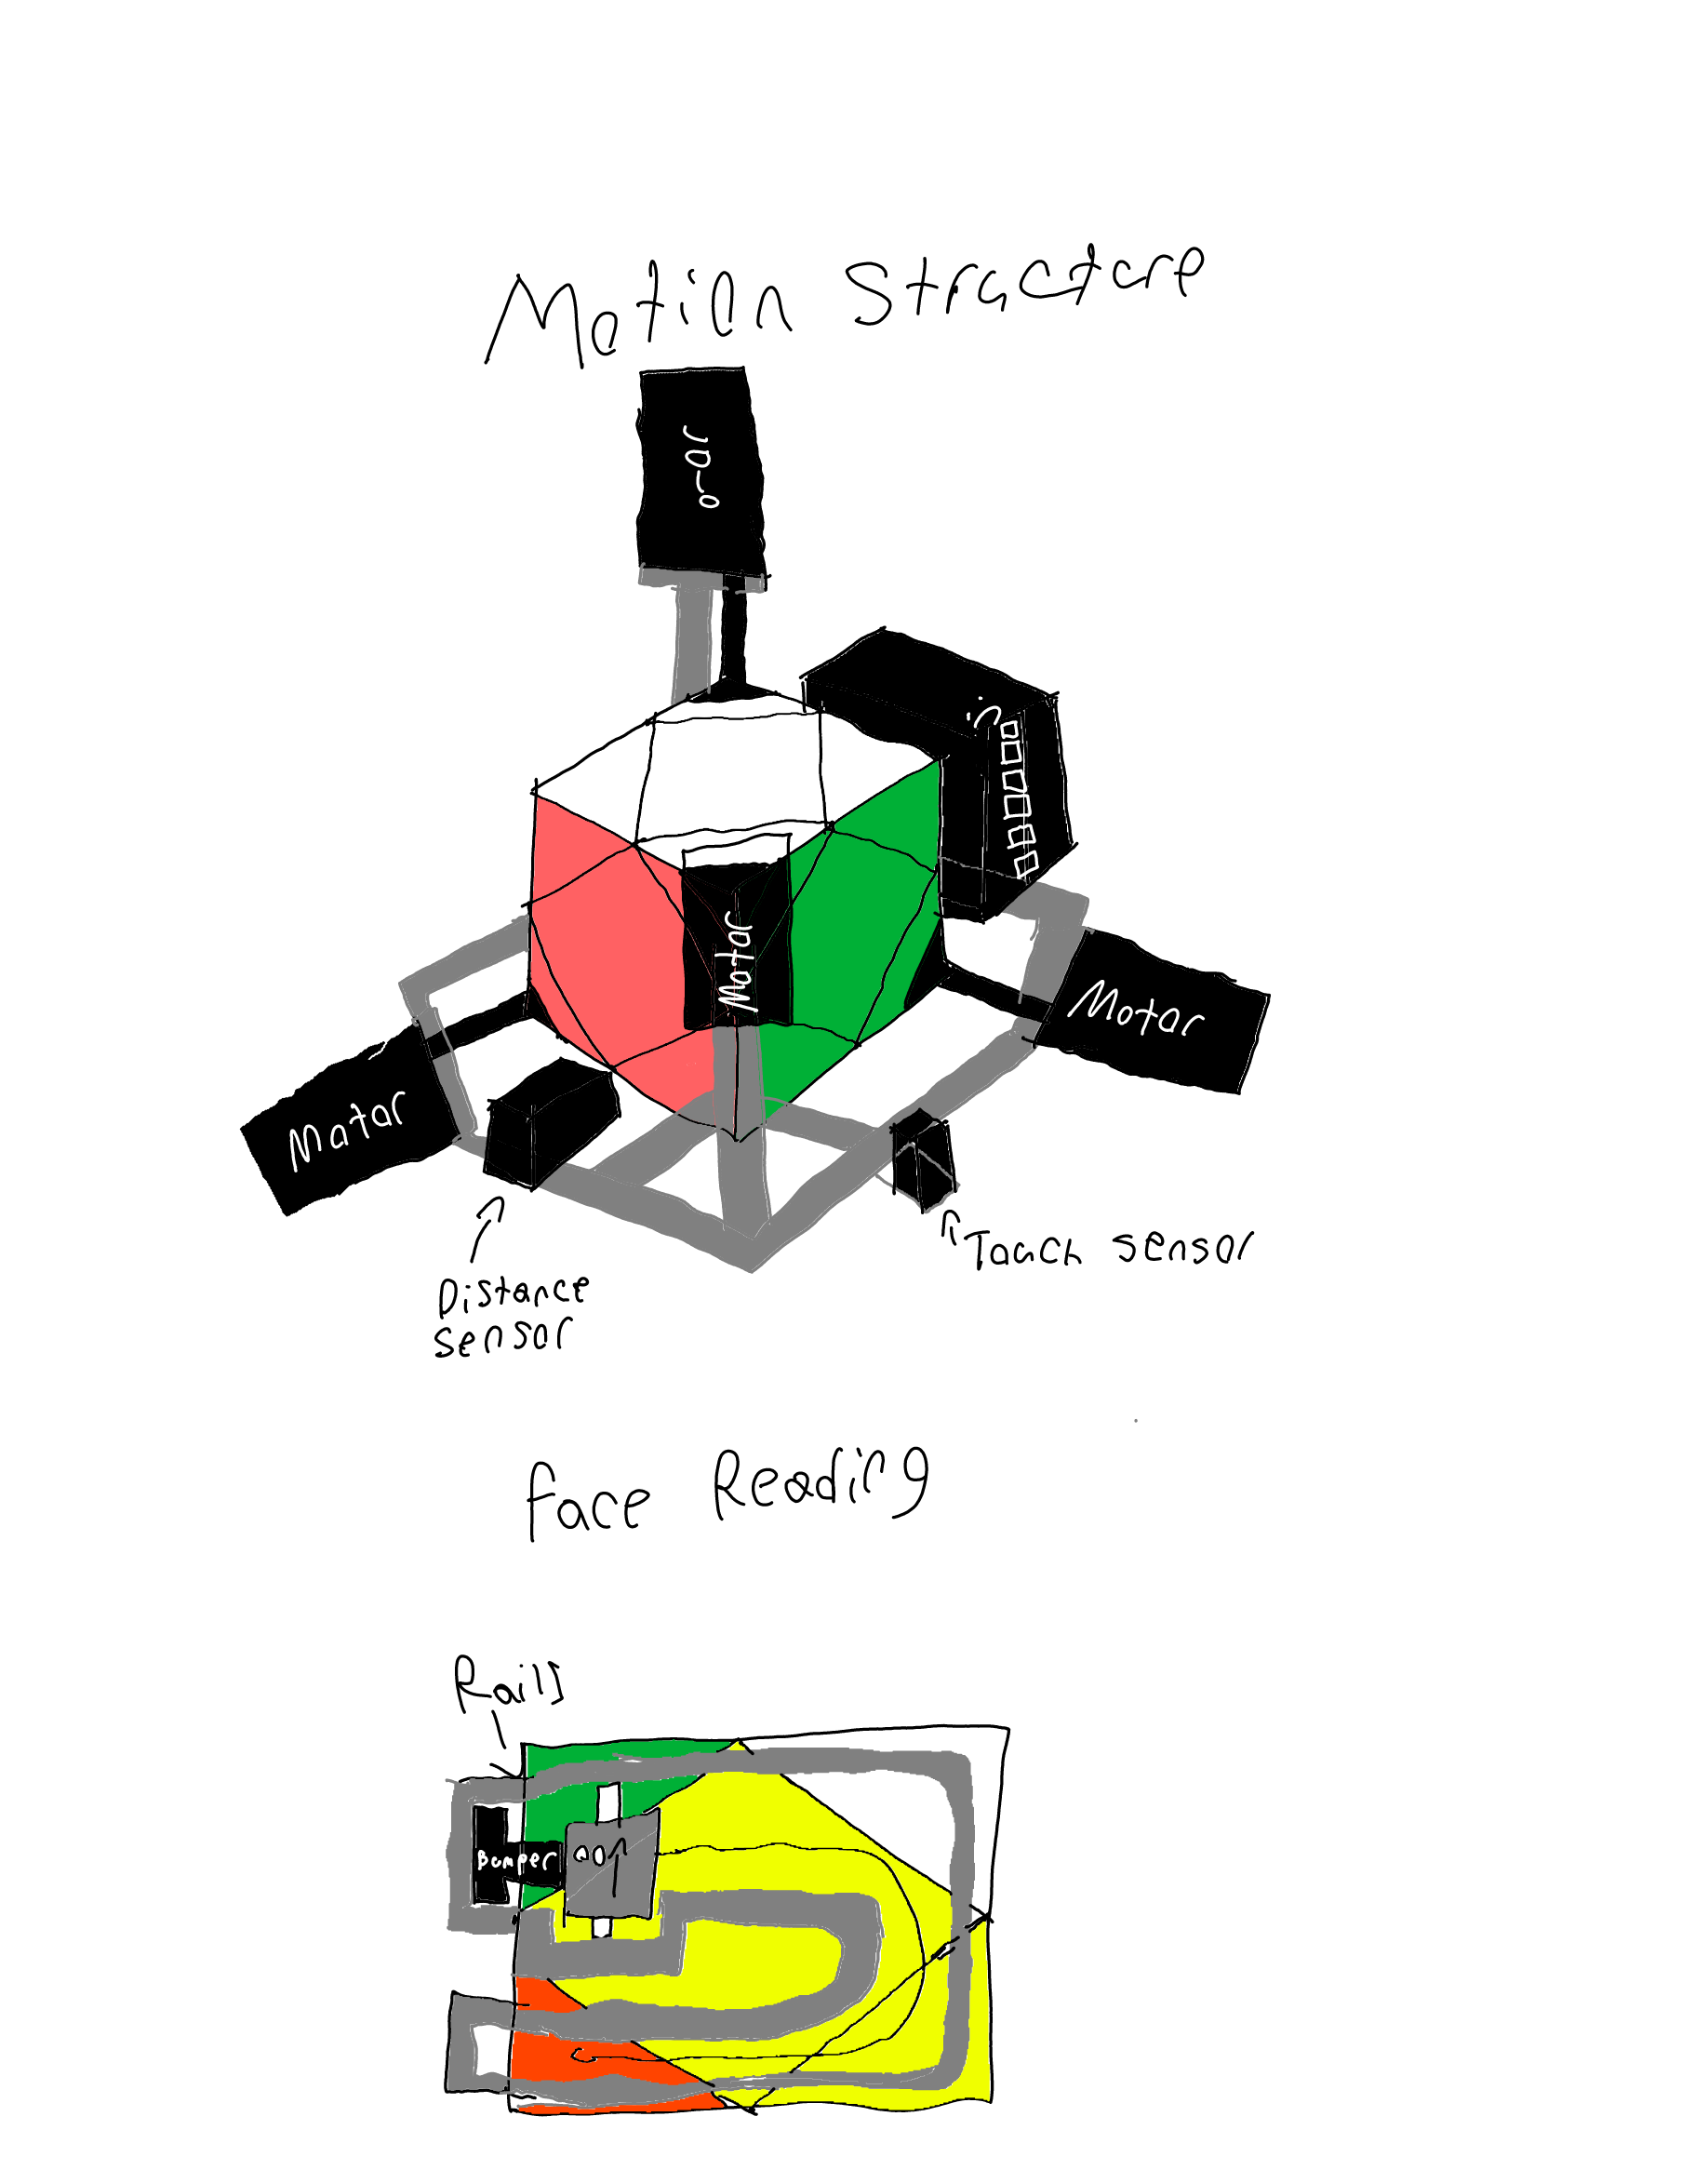 Motion Structure
Motor
Motor
Motor
Distance
sensor
Touch sensor
Face Reading
Rails
Bumper